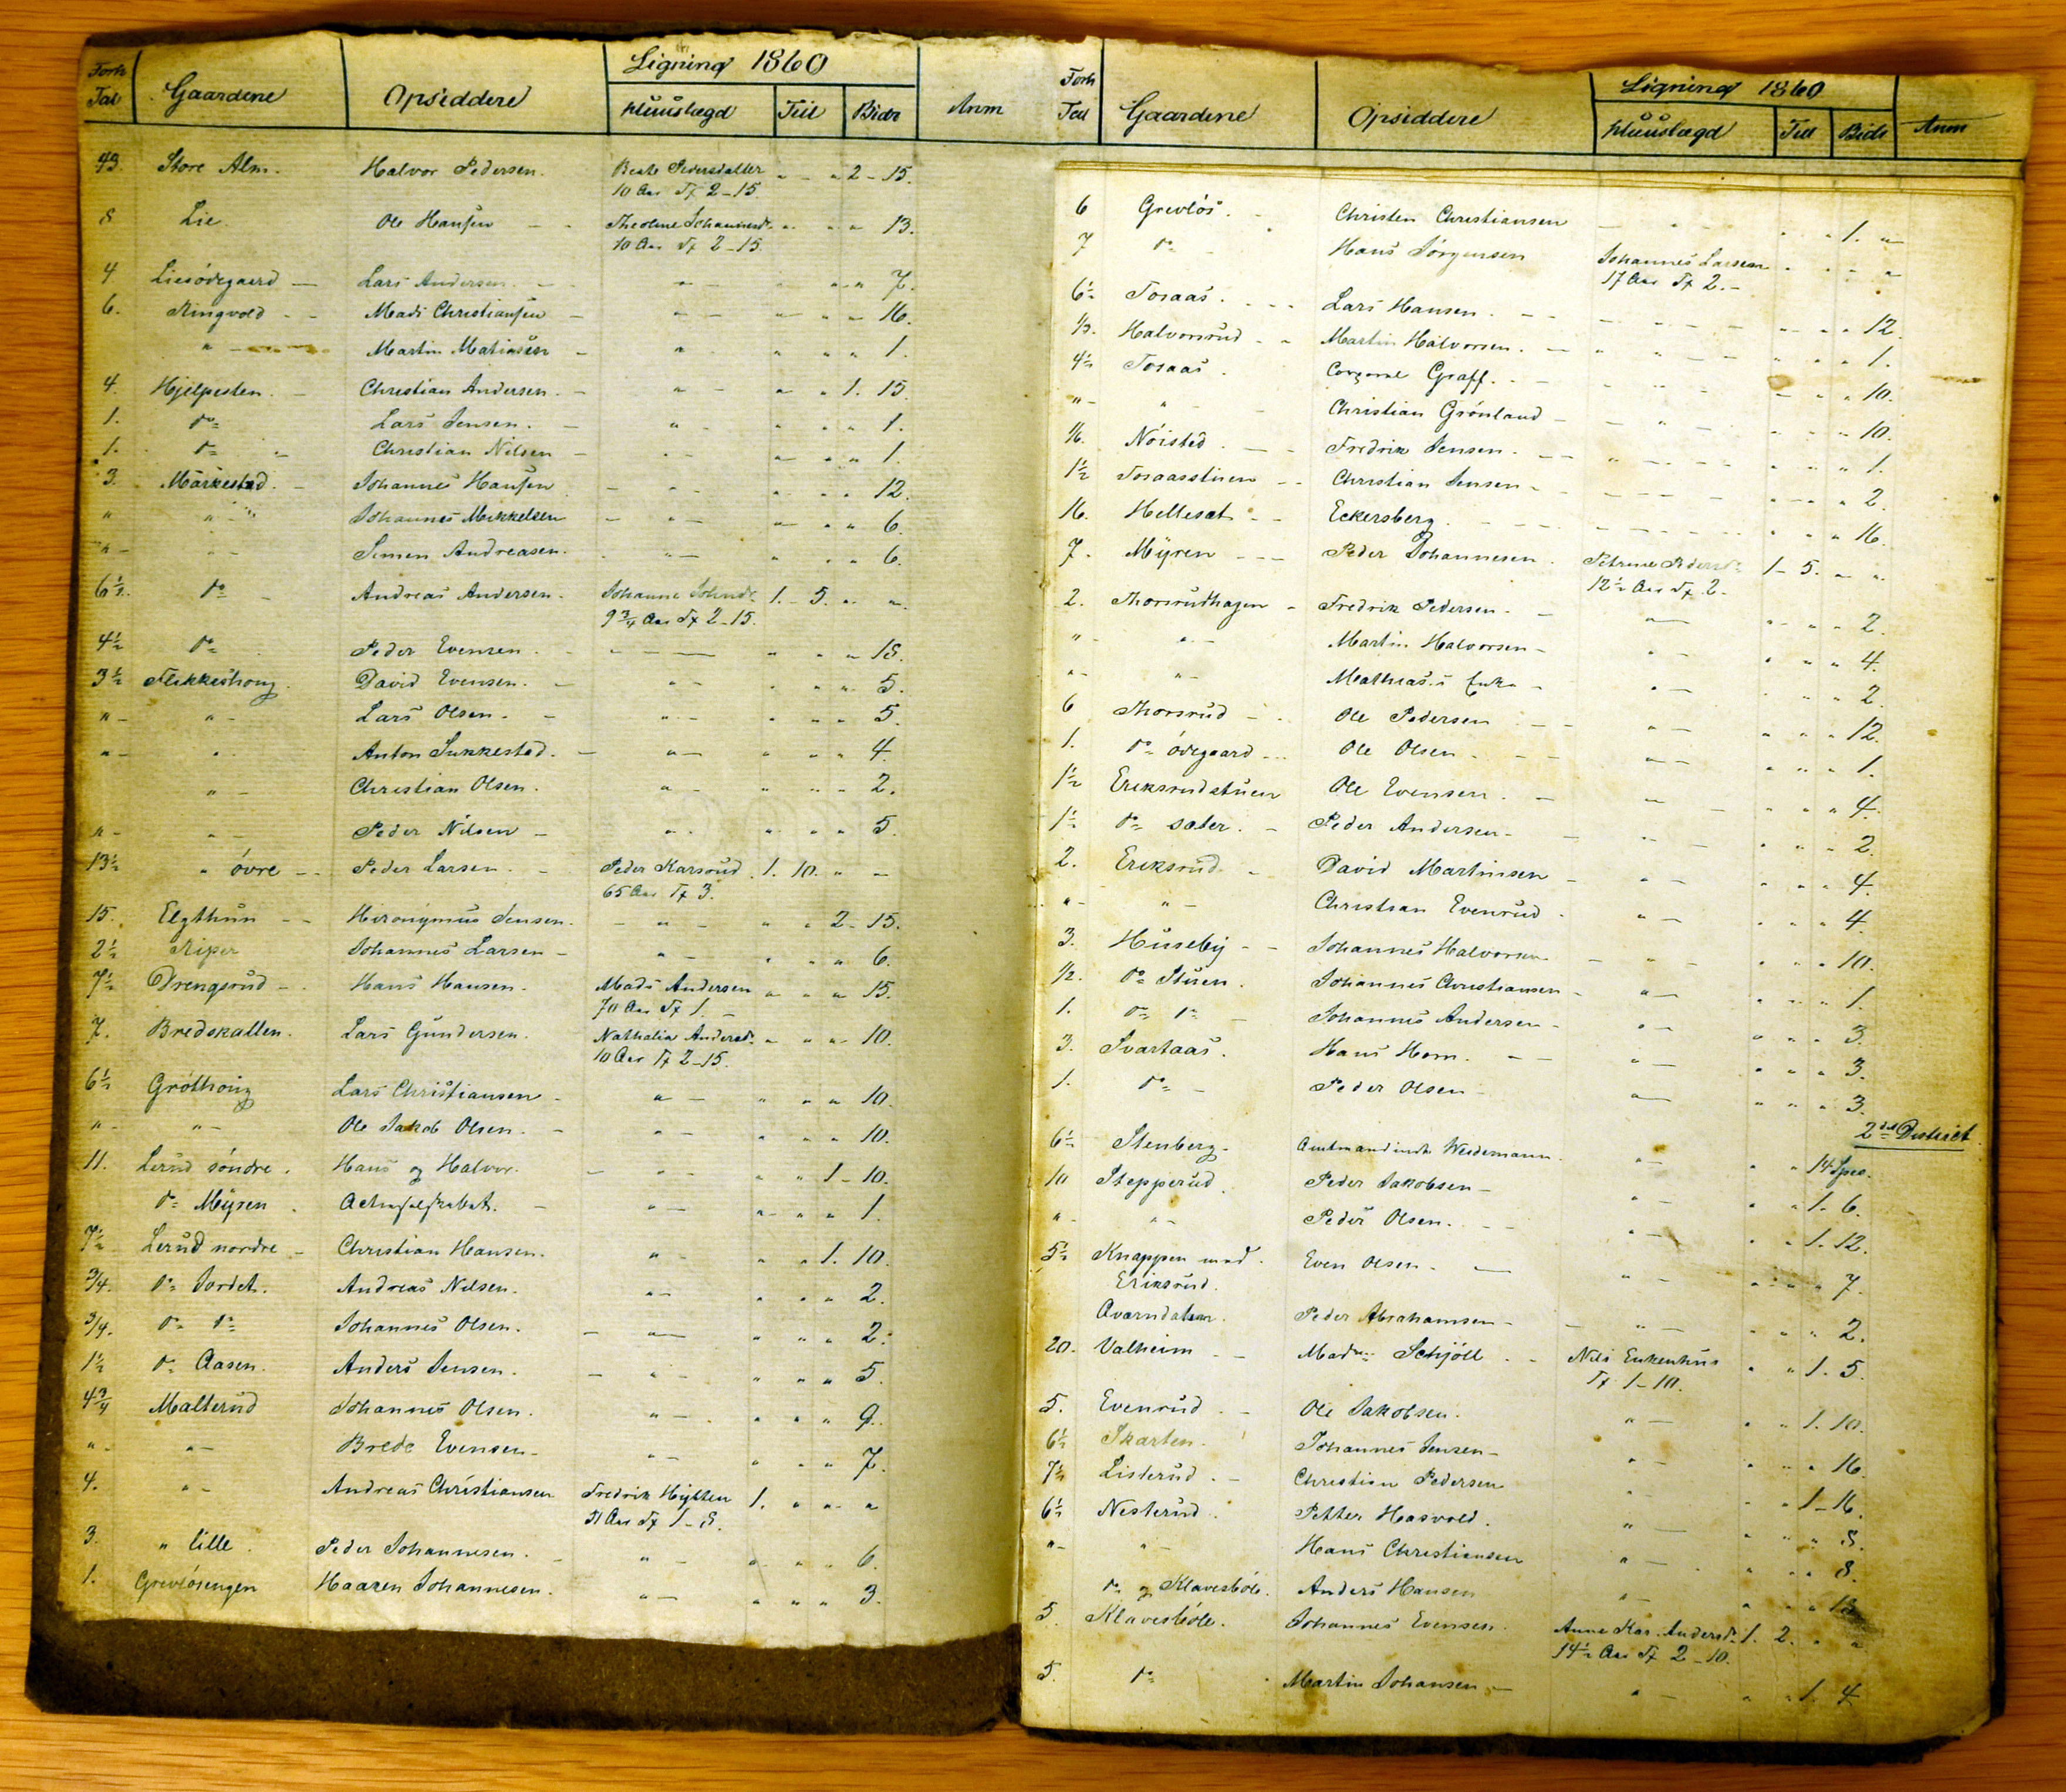 Forh Tal Gaardene Opsiddere Ligning 1860 Anm
Huuslægd Till Bidr
43. Store Alm. Halvor Pedersen. Beate Pedersdatter " " " 2-15.
10 Aar Tx 2-15.
8 Lie. Ole Hansen " " " 13.
10 Aar Tx 2-15.
4. Liesödegaard Lars Andersen. " " " " 7.
6. Ringvold Mads Christiansen " " " " 16.
" Martin Matiasen " " " " 1.
4. Hjelpesten. Christian Andersen. " " " 1. 15.
1. do Lars Jensen. " " " " 1.
1. do Christian Nilsen " " " 1.
3. Märkestad. Johannes Hansen " " " 12.
" " Johannes Mikkelsen " " " " 6.
" " Simen Andreasen. " " " " 6.
6½. do Andreas Andersen. Johanne Johnsdr 1.-5. " "
9¾ Aar Tx 2-15.
4½ do Peder Evensen. " " " 18.
3½ Flikkeshoug. David Evensen. " " " " 5.
" " Lars Olsen. " " " " 5.
" " Anton Sukkestad. " " " " 4.
" Christian Olsen. " " " " 2.
" " Peder Nilsen " " " " 5.
13½ " övre Peder Larsen. Peder Karsrud 1. 10. " "
65 Aar Tx 3.
15. Elgthun Hironymus Jensen. " " " 2-15.
2½ Riper Johannes Larsen " " " " 6.
7½ Drengsrud Hans Hansen. Mads Andersen " " " 15.
70 Aar Tx 1.
7. Bredskallen. Lars Gundersen. Nathalia Andersd. " " " 10.
10 Aar Tx 2-15.
6½ Gröthoug Lars Christiansen " " " " 10.
" " Ole Jakob Olsen. " " " " 10.
11. Lerud söndre. Hans og Halvor. " " " 1-10.
do Myren. " " " " 1.
7½ Lerud nordre Christian Hansen. " " " 1. 10.
3/4. do Jordet. Andreas Nilsen. " " " " 2.
3/4. do do Johannes Olsen. " " " " 2.
1½ do Aasen. Anders Jensen. " " " " 5.
4¾ Malterud Johannes Olsen. " " " " 9.
" " Brede Evensen " " " " 7.
4. " Andreas Christiansen Fredrik Hytten 1. " " "
Aar Tx 1-8.
3. " lille. Peder Johannesen. " " " " 6.
1. Grevlösengen Haagen Johannesen. " " " " 3.
Forh Tal Gaardene Opsiddere Ligning 1860 Anm
Huuslægd Till Bidr
6 Grevlös. Christen Christiansen " " " 1. "
7 do Hans Jörgensen Johannes Larsen " " " "
17 Aar Tx 2.-
6½ Tosaas. Lars Hansen. " " " 12.
1/3. Halvorsrud Martin Halvorsen. " " " " 1.
4½ Tosaas. Graff. " " " 10.
" " Christian Grönland " " " 10.
1/6. Nöisted. Fredrik Jensen. " " " " 1.
1½ Tosaasstuen Christian Jensen " " " 2.
16. Hellesæt Eckersberg. " " " 16.
7. Myren Peder Johannesen. Petrine Pedersdr 1-5. " "
12½ Aar Tx 2-
2. Thorsrudhagen Fredrik Pedersen. " " " " 2.
" " Martin Halvorsen " " " " 4.
" " Mathias.s Enke " " " " 2.
6 Thorsrud Ole Pedersen " " " " 12.
1. do ödegaard Ole Olsen. " " " " 1.
1½ Eriksrudstuen Ole Evensen. " " " " 4.
1½ do sæter. Peder Andersen " " " " 2.
2. Eriksrud David Martinsen " " " " 4.
" " Christian Evenrud " " " " 4.
3. Huseby Johannes Halvorsen " " " " 10.
1/2. do Stuen. Johannes Christiansen " " " " 1.
1. do do Johannes Andersen " " " " 3.
3. Svartaas. Hans Horn. " " " " 3.
1. do Peder Olsen " " " " 3.
2det District.
6½ Stenberg. Amtmandinde Weidemann. " " " 14 Spd.
10 Stepperud. Peder Jakobsen " " " 1. 6.
" " Peder Olsen. " " " 1. 12.
5½ Knappen med. Even Olsen. " " " " 7.
Eriksrud.
Qværndalen. Peder Abrahamsen " " " " 2.
20. Valheim Madme Schjöll Nils Enkenhus " " 1. 5.
Tx 1-10.
5. Evenrud. Ole Jakobsen. " " " 1. 10.
6½ Skarten. Johannes Jensen " " " " 16.
7½ Listerud. Christian Pedersen " " " 1-16.
6½ Nesterud. Petter Hasvold. " " " " 8.
" " Hans Christiansen " " " " 8.
do og Klavesböle. Anders Hansen " " " "
5. Klavesböle. Johannes Evensen. Anne Kar. Andersdr 1. 2. " "
14½ Aar Tx 2-10.
5. do Martin Johansen " " " 1. 4